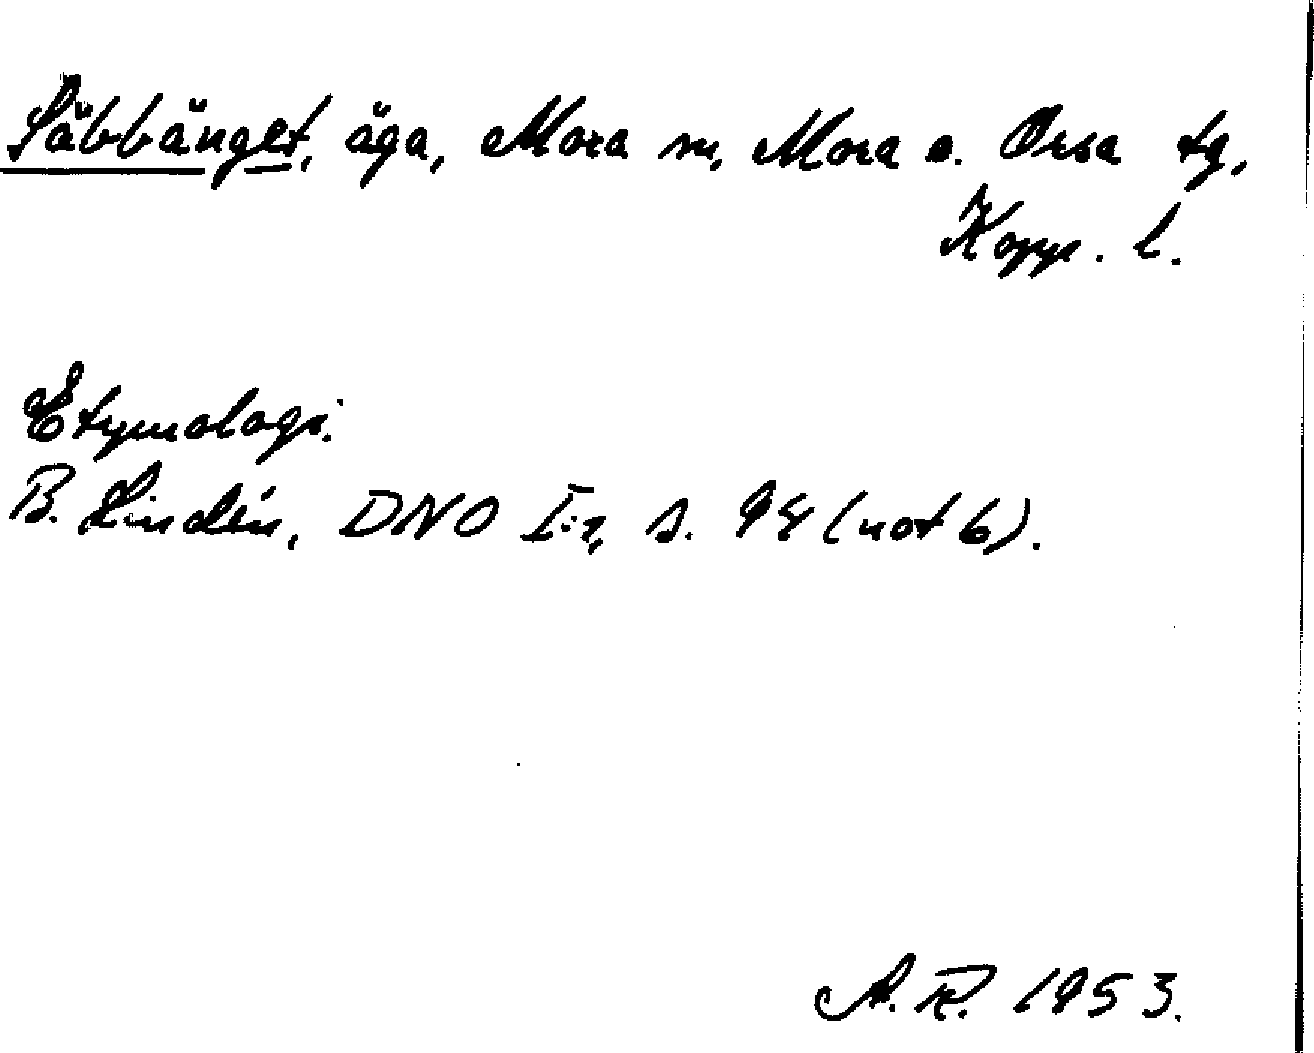 Säbbänget, äga, Mora sn, Mora o. Orsa tg,
Kopp. l.
Etymologi.
B. Lindén, DNO I:1, s. 94 (not 6).
A. R. 1953.